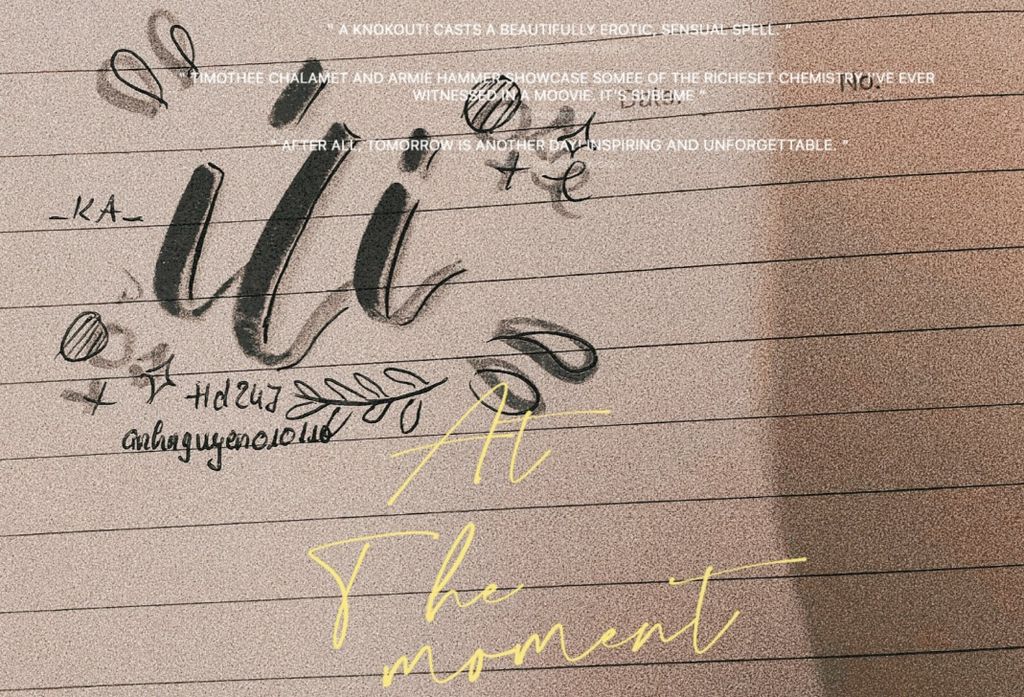 " A KNOKOUT! CASTS A BEAUTIFULLY EROTIC, SENSUAL SPELL. "
" TIMOTHEE CHALAMET AND ARMIE HAMMER SHOWCASE SOMEE OF THE RICHESET CHEMISTRY I'VE EVER
WITNESSED IN A MOOVIE. IT'S SUBLIME "
Date:
No.
" AFTER ALL, TOMORROW IS ANOTHER DAY! INSPIRING AND UNFORGETTABLE. "
_KA_
Hd247
anhnguyen010110
At
The
moment